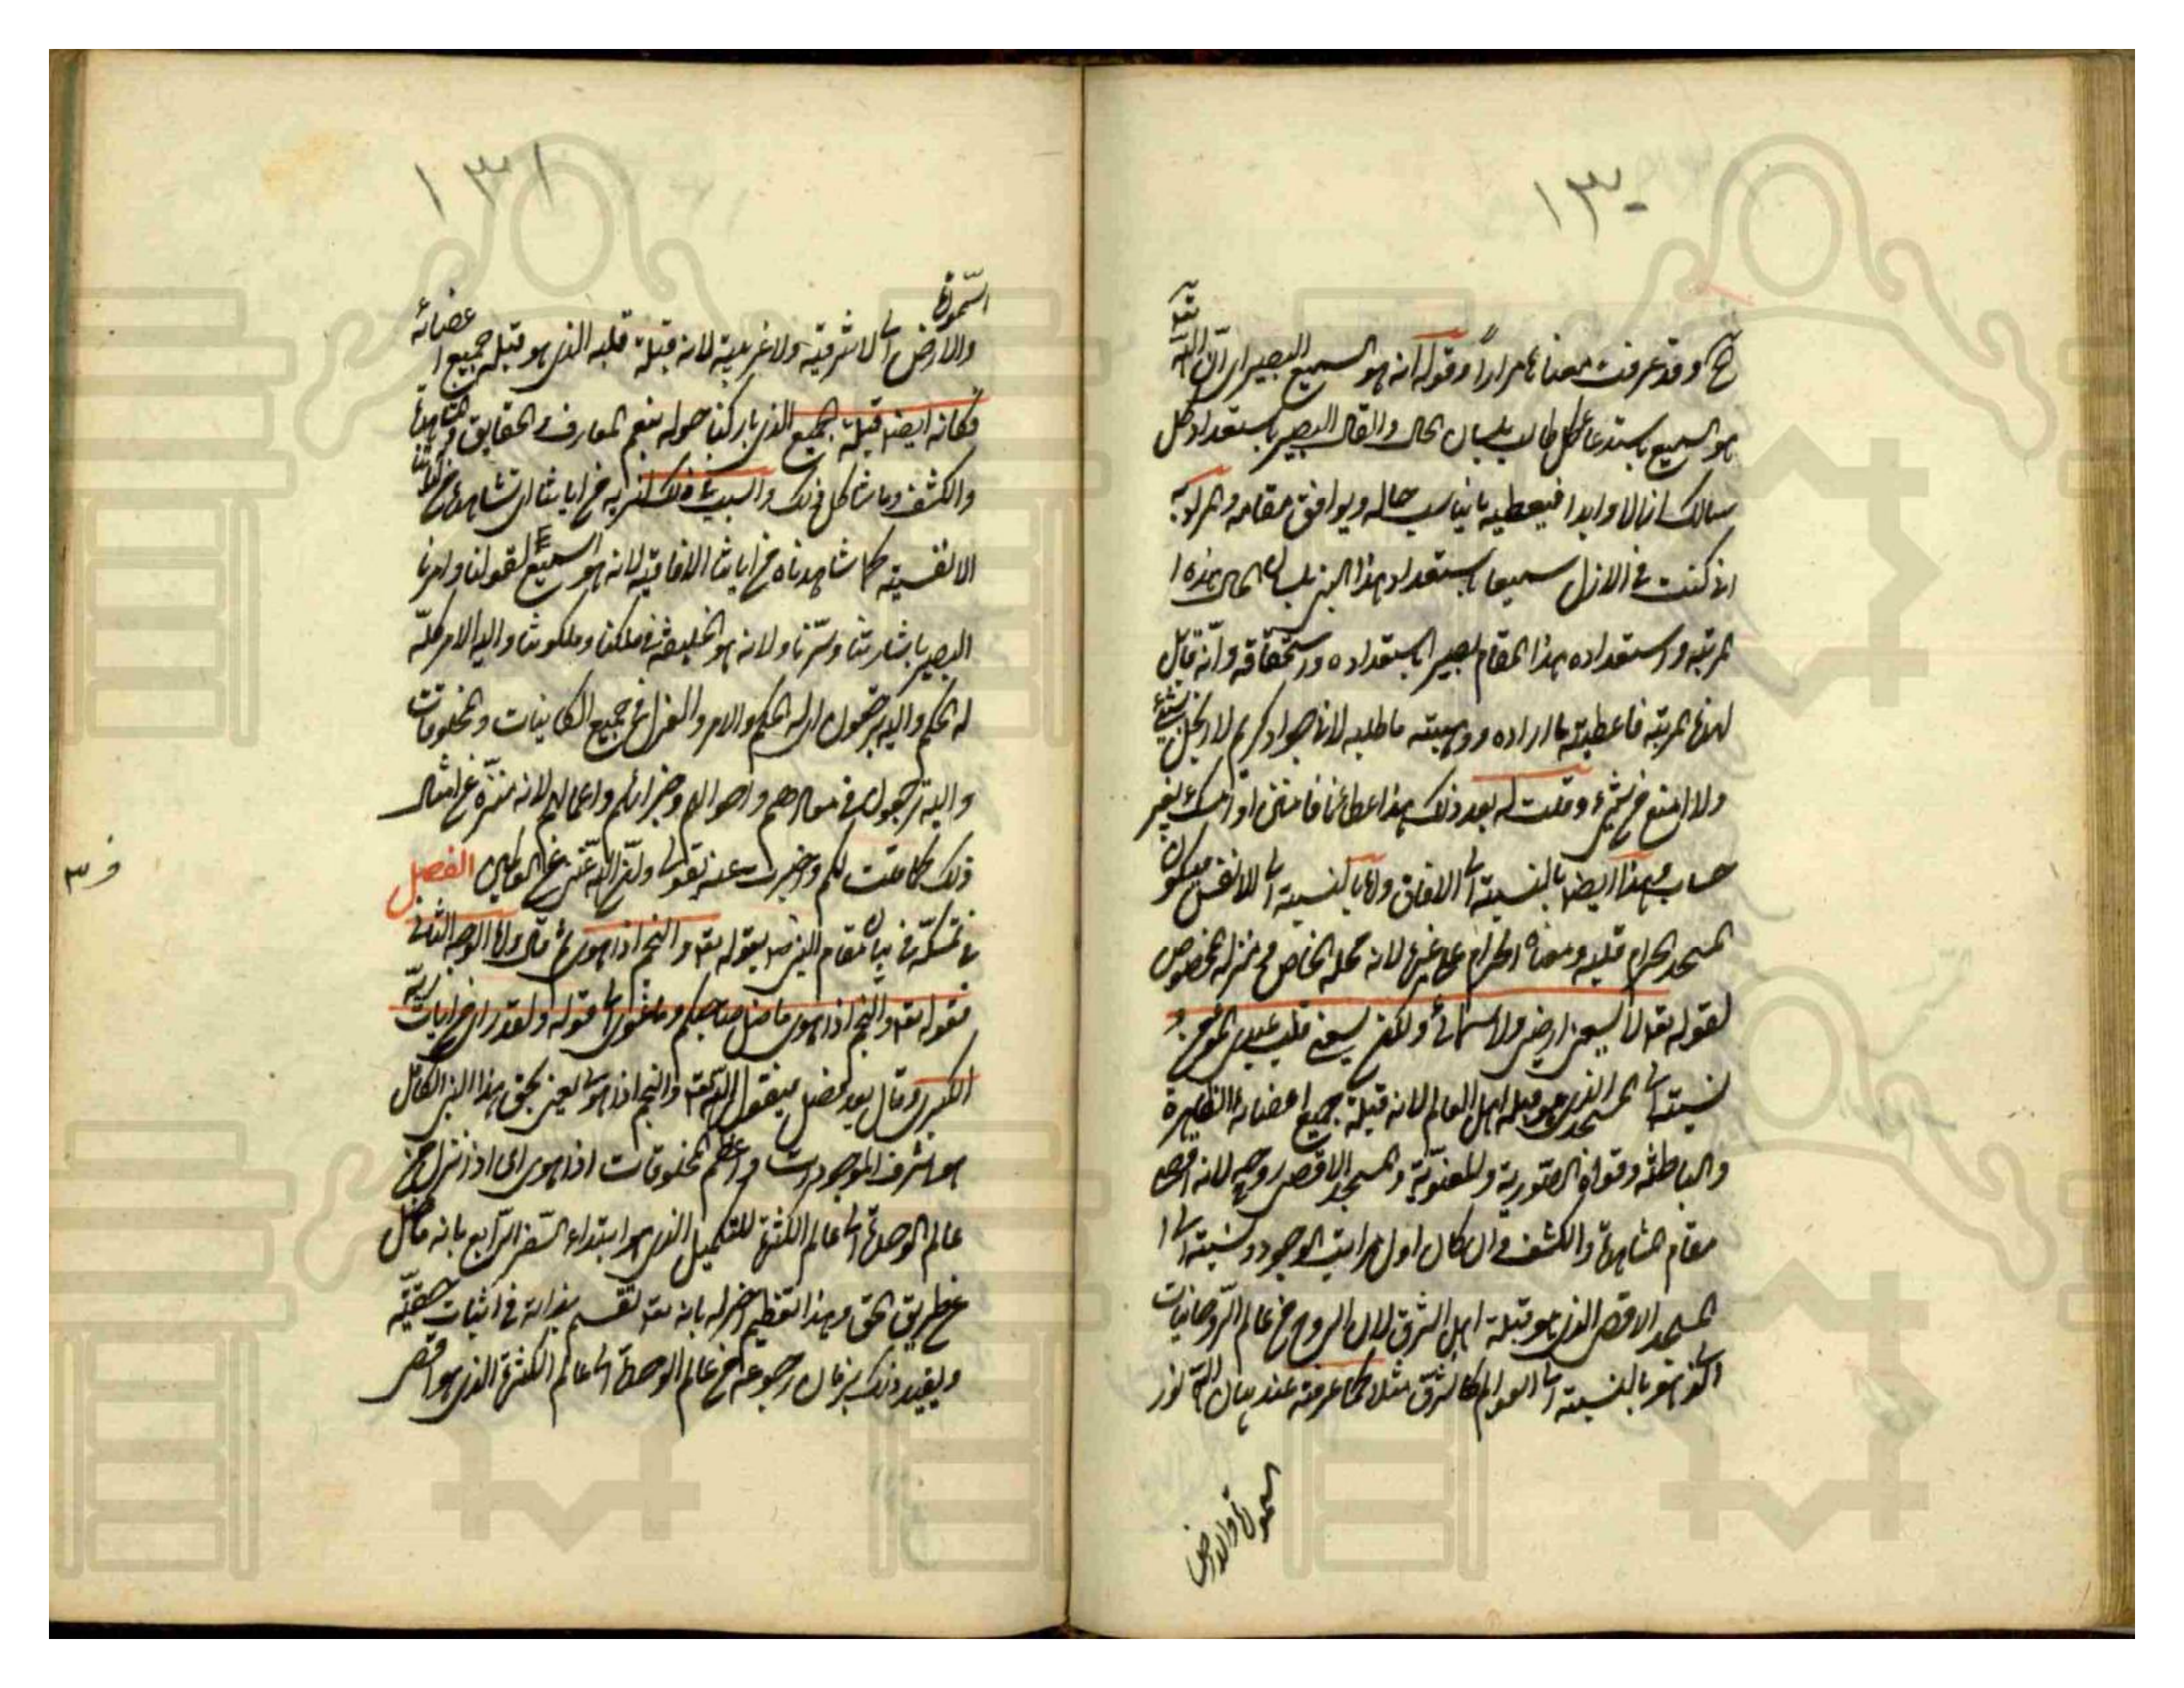 ١٣٠
وقد عرفت معناها مرارا وقوله انه هو السميع البصير اى ان الله
هو السميع باستدعاء كل طالب بلسان الحال والقال البصير باستعداد كل
سالك ازلا وابدا فيعطيه ما يناسب حاله ويوافق مقامه والمراد به
انى كنت فى الازل سميعا باستعداد هذا النبى بلسان الحال هذه
المرتبة واستعداده هذا المقام بصيرا باستعداده واستحقاقه وانه قابل
لهذه المرتبة فاعطيته ما اراده ووهبته ما طلبه لانا جواد كريم لا ابخل بشىء
ولا امنع من شىء وقلت له بعد ذلك هذا عطاءنا فامنن او امسك بغير
حساب وهذا ايضا بالنسبة الى الافاق واما بالنسبة الى الانفس فيكون
المسجد الحرام قلبه ومعناه الحرام على غيره لانه محله الخاص ومنزله المخصوص
لقوله تعالى لا يسعنى ارضى ولا سمائى ولكن يسعنى قلب عبدى المؤمن و
نسبته الى المسجد الذى هو قبلة اهل العالم لانه قبلة جميع اعضائه الظاهرة
والباطنة وقواه الصورية والمعنوية والمسجد الاقصى روحه لانه اقصى
مقام المشاهدة والكشف وان كان اول مراتب الوجود ونسبته الى
المسجد الاقصى الذى هو قبلة اهل الشرق لان الروح من عالم الروحانيات
الذى هو بالنسبة الى العوالم كالشرق مثلا كما عرفته عند بيان الله نور
السموات والارض
١٣١
السموات
والارض الى لا شرقية ولا غربية لانه قبلة قلبه الذى هو قبلة جميع اعضائه
فكانه ايضا قبلة الجميع الذى باركنا حوله بنعم المعارف والحقايق والمشاهدة
والكشف وما شاكل ذلك والسبب فى ذلك لنريه من اياتنا اى لنشاهده من اياتنا
الانفسية كما شاهدناه من اياتنا الافاقية لانه هو السميع لقولنا وامرنا
البصير باشارتنا وسرنا ولانه هو الخليفة فى ملكنا وملكوتنا واليه الامر كله
له الحكم واليه ترجعون اى له الحكم والامر والعزل فى جميع الكاينات والمخلوقات
واليه ترجعون فى معادهم واحوالهم وجزائهم واعمالهم لانه منزه عن امثال
ذلك كما قلت لكم واخبرت عنه بقولى ولان الله غنى عن العالمين الفصل
فى تمسكه فى بيان مقام النبى ص بقوله تعالى والنجم اذا هوى ثم قال واما الوجه الثانى
فقوله تعالى والنجم اذا هوى ما ضل صاحبكم وما غوى الى قوله ولقد راى من ايات ربه
الكبرى وقال بعد فصل فيقول الله تعالى والنجم اذا هوى يعنى بحق هذا النبى الكامل
هو اشرف الموجودات واعظم المخلوقات اذا هوى اى اذا نزل من
عالم الوحدة الى عالم الكثرة للتكميل الذى هو ابتداء السفر الرابع بانه ما ضل
عن طريق الحق وهذا تعظيم اخر له بانه تعالى يقسم بذاته فى اثبات حقيته
ويقيد ذلك بزمان رجوعه من عالم الوحدة الى عالم الكثرة الذى هو اقصى